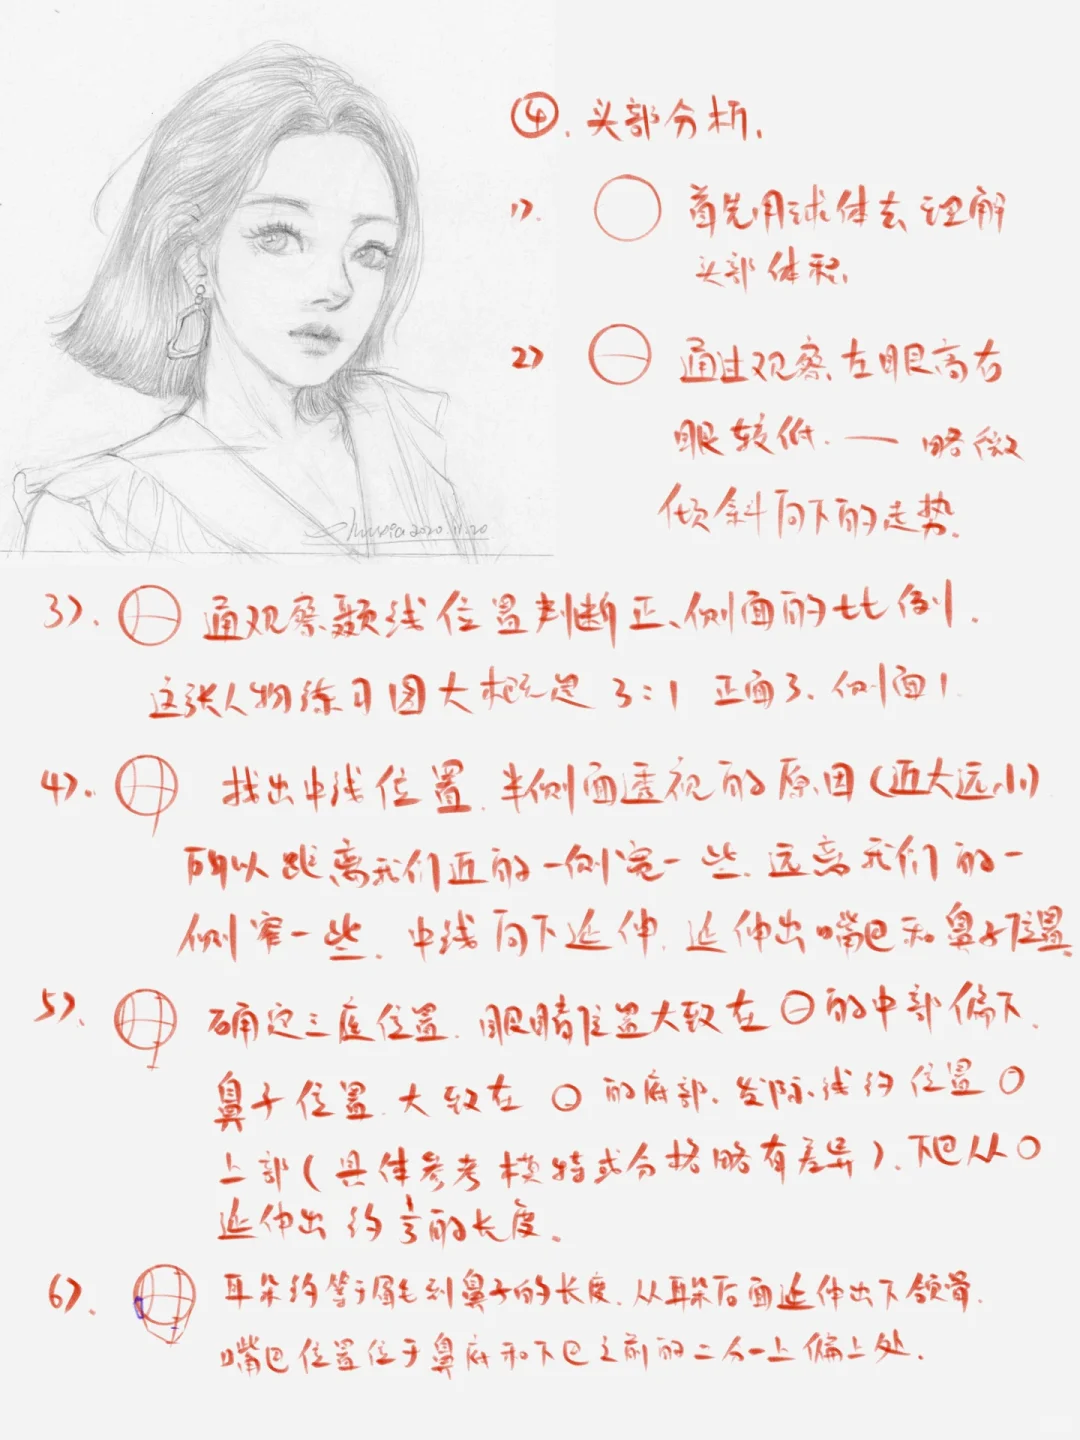 ④. 头部分析.
1). 首先用球体去理解
头部体积.
2) 通过观察左眼高右
眼较低. — 略微
倾斜向下的走势.
3). 通观察颞线位置判断正、侧面的比例.
这张人物练习图大概是 3:1 正面3、侧面1.
4). 找出中线位置. 半侧面透视的原因(近大远小)
所以距离我们近的一侧宽一些. 远离我们的一
侧窄一些. 中线向下延伸. 延伸出嘴巴和鼻子位置.
5). 确定三庭位置. 眼睛位置大致在 的中部偏下.
鼻子位置. 大致在 的底部. 发际线约位置
上部(具体参考模特或分格略有差异). 下巴从
延伸出约 1/3 的长度.
6). 耳朵约等于眉毛到鼻子的长度. 从耳朵后面延伸出下颌骨.
嘴巴位置位于鼻底和下巴之前的二分一上偏上处.
2020.11.20